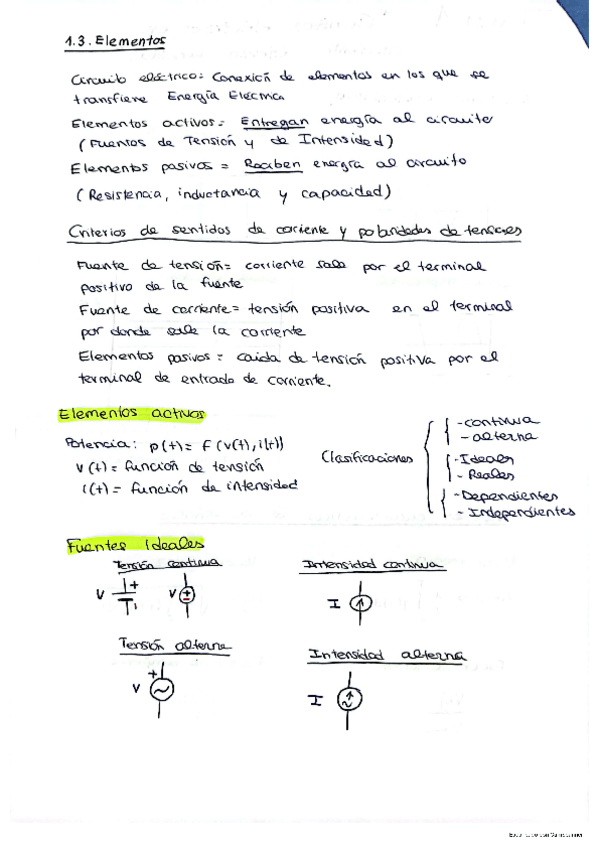 1.3. Elementos
Circuito eléctrico: Conexión de elementos en los que se
transfiere Energía Eléctrica
Elementos activos = Entregan energía al circuito
(Fuentes de Tensión y de Intensidad)
Elementos pasivos = Reciben energía al circuito
(Resistencia, inductancia y capacidad)
Criterios de sentidos de corriente y polaridades de tensiones
Fuente de tensión = corriente sale por el terminal
positivo de la fuente
Fuente de corriente = tensión positiva en el terminal
por donde sale la corriente
Elementos pasivos = caida de tensión positiva por el
terminal de entrada de corriente.
Elementos activos
Potencia: p(t) = f(v(t), i(t))
v(t) = función de tensión
i(t) = función de intensidad
Clasificaciones
- continua
- alterna
- Ideales
- Reales
- Dependientes
- Independientes
Fuentes ideales
Tensión continua
V + V +
Intensidad continua
I
Tensión alterna
+
V
Intensidad alterna
I